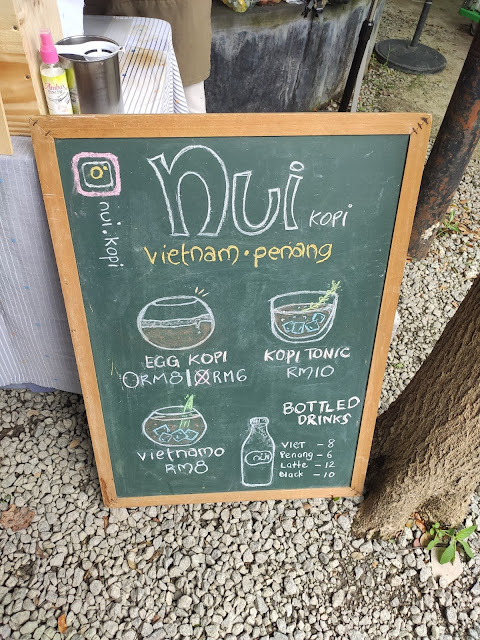 nui KOPI
vietnam • penang
nui.kopi
EGG KOPI
ORM8 | XRM6
KOPI TONIC
RM10
vietnamo
RM8
BOTTLED
DRINKS
VIET - 8
Penang - 6
Latte - 12
Black - 10